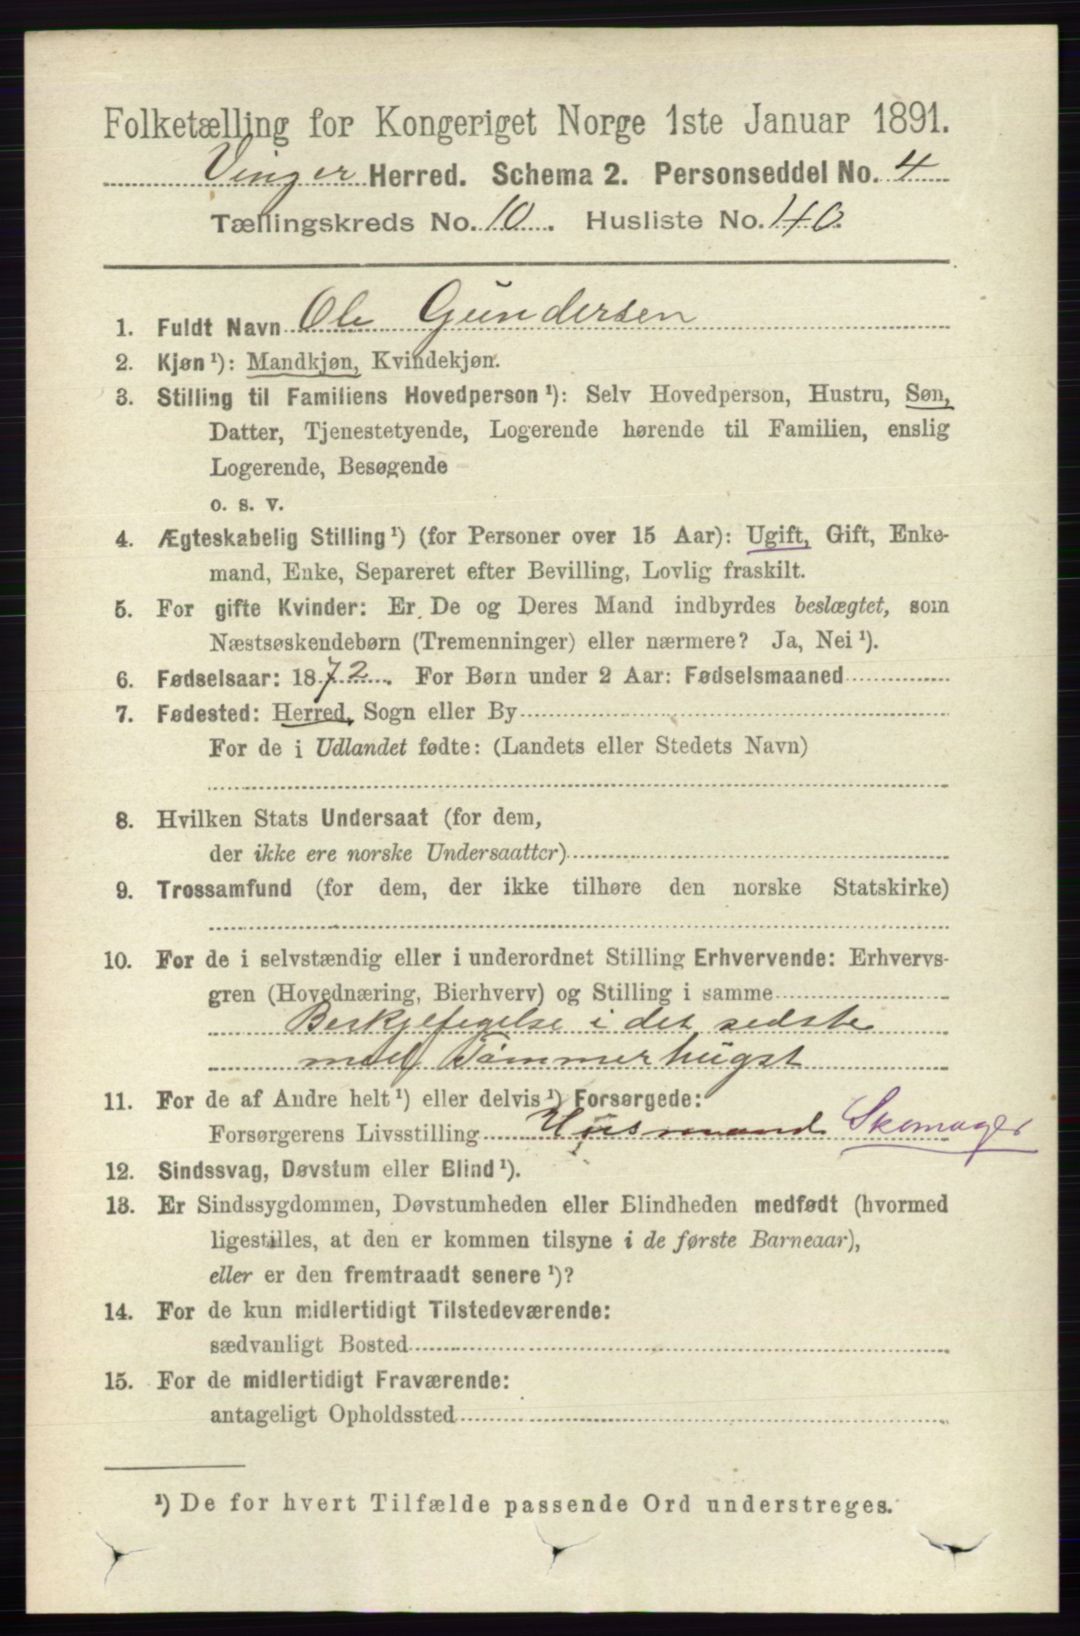 Folketælling for Kongeriget Norge 1ste Januar 1891.
Vinger Herred. Schema 2. Personseddel No. 4
Tællingskreds No. 10. Husliste No. 40.
1. Fuldt Navn Ole Gundersen
2. Kjøn¹): Mandkjøn, Kvindekjøn.
3. Stilling til Familiens Hovedperson¹): Selv Hovedperson, Hustru, Søn,
Datter, Tjenestetyende, Logerende hørende til Familien, enslig
Logerende, Besøgende
o. s. v.
4. Ægteskabelig Stilling¹) (for Personer over 15 Aar): Ugift, Gift, Enke-
mand, Enke, Separeret efter Bevilling, Lovlig fraskilt.
5. For gifte Kvinder: Er De og Deres Mand indbyrdes beslægtet, som
Næstsøskendebørn (Tremenninger) eller nærmere? Ja, Nei¹).
6. Fødselsaar: 1872. For Børn under 2 Aar: Fødselsmaaned
7. Fødested: Herred, Sogn eller By
For de i Udlandet fødte: (Landets eller Stedets Navn)
8. Hvilken Stats Undersaat (for dem,
der ikke ere norske Undersaatter)
9. Trossamfund (for dem, der ikke tilhøre den norske Statskirke)
10. For de i selvstændig eller i underordnet Stilling Erhvervende: Erhvervs-
gren (Hovednæring, Bierhverv) og Stilling i samme
Beskjefegelse i det sedste
med Tømmerhugst
11. For de af Andre helt¹) eller delvis¹) Forsørgede:
Forsørgerens Livsstilling Husmand Skomager
12. Sindssvag, Døvstum eller Blind¹).
13. Er Sindssygdommen, Døvstumheden eller Blindheden medfødt (hvormed
ligestilles, at den er kommen tilsyne i de første Barneaar),
eller er den fremtraadt senere¹)?
14. For de kun midlertidigt Tilstedeværende:
sædvanligt Bosted
15. For de midlertidigt Fraværende:
antageligt Opholdssted
¹) De for hvert Tilfælde passende Ord understreges.